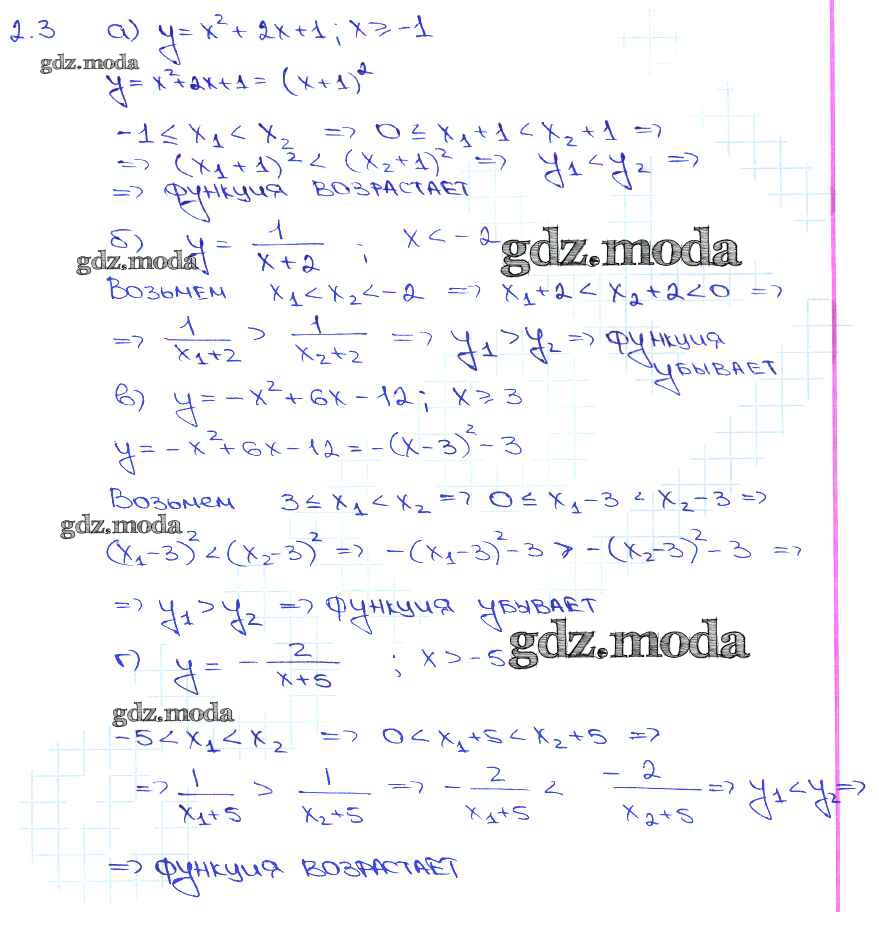 2.3 а) y = x² + 2x + 1; x ≥ -1
gdz.moda
y = x² + 2x + 1 = (x+1)²
-1 ≤ x₁ < x₂ => 0 ≤ x₁+1 < x₂+1 =>
=> (x₁+1)² < (x₂+1)² => y₁ < y₂ =>
=> функция возрастает
б) y = 1/(x+2) ; x < -2
gdz.moda
gdz.moda
Возьмем x₁ < x₂ < -2 => x₁+2 < x₂+2 < 0 =>
=> 1/(x₁+2) > 1/(x₂+2) => y₁ > y₂ => функция
убывает
в) y = -x² + 6x - 12; x ≥ 3
y = -x² + 6x - 12 = -(x-3)² - 3
Возьмем 3 ≤ x₁ < x₂ => 0 ≤ x₁-3 < x₂-3 =>
gdz.moda
(x₁-3)² < (x₂-3)² => -(x₁-3)² - 3 > -(x₂-3)² - 3 =>
=> y₁ > y₂ => функция убывает
gdz.moda
г) y = - 2/(x+5) ; x > -5
gdz.moda
-5 < x₁ < x₂ => 0 < x₁+5 < x₂+5 =>
=> 1/(x₁+5) > 1/(x₂+5) => - 2/(x₁+5) < -2/(x₂+5) => y₁ < y₂ =>
=> функция возрастает